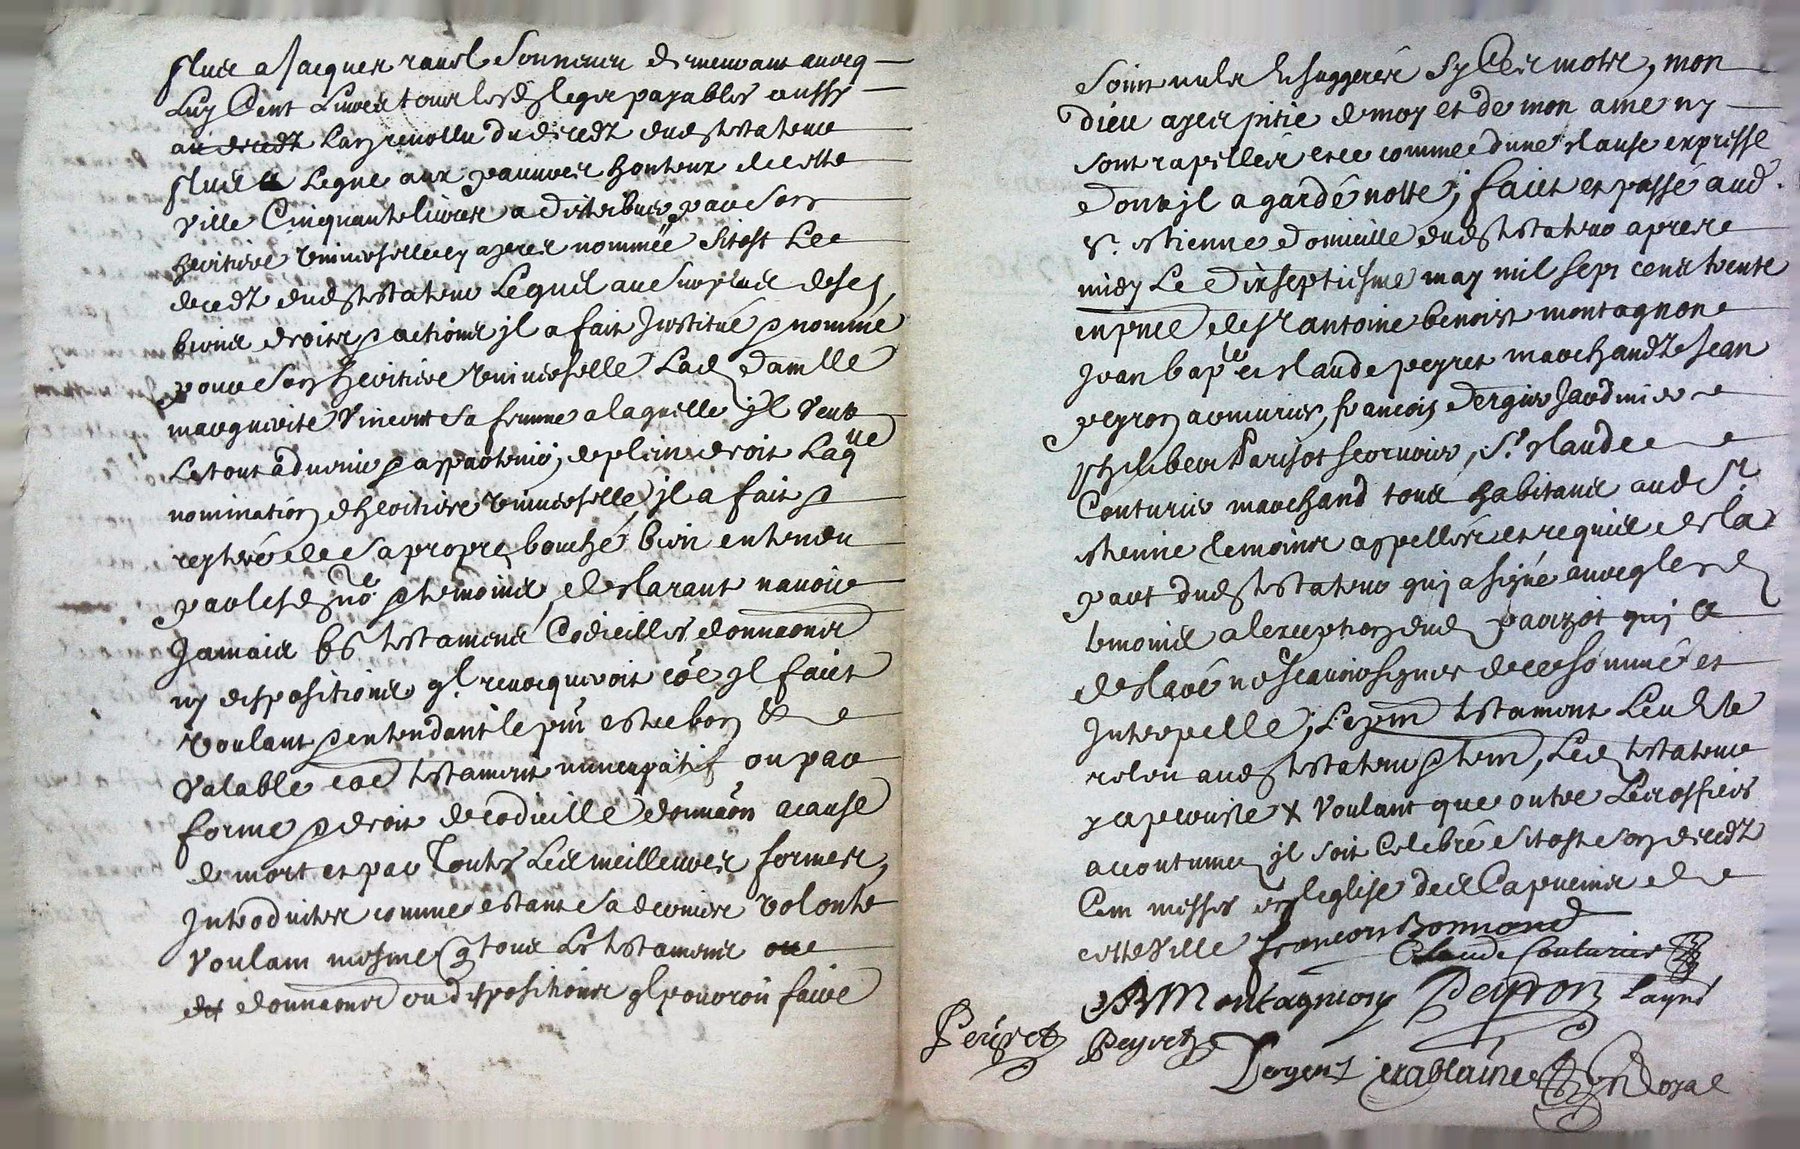 plus a Jacques ravel son neveu demeurant avecq
luy Cent Livres tous lesd. legs payables aussy
au decedz Lad. revollu du decedz dud. testateur
plus a Legue aux pauvres honteux de cette
ville Cinquante livres a distribuer par son
heritiere universelle cy apres nommée sitost le
decedz dud. testateur Lequel au surplus de ses
biens droits & actions jl a fait Institué & nommé
pour son heritiere universelle Lad. damlle
marguerite Vincent sa femme a laquelle jl veut
Le tout advenir & appartenir, de plein droit Laqlle
nomination d'heritiere universelle, jl a fait &
repteré de sa propre bouche bien entendu
par lesd. nore & temoins, declarant n'avoir
Jamais fts testamens Codicilles donnaons
ny dispositions ql revocqueroit coe jl faict
voulant & entendant le pnt estre bon & e
valable coe testament nuncupatif ou par
forme & droit de codicille donnaon a cause
de mort et par toutes Les meilleures formes,
Introduites comme estant sa derniere volonté
voulant mesme q tous Les testamens ou
donnaons ou dispositions ql pouroit faire
soint nuls et suggerés sy Ces mots, mon
dieu ayes pitié de moy et de mon ame ny
sont rapellés et ce comme d'une clause expresse
dont jl a gardé notte; faict et passé aud.
St. etienne domicille dud. testateur apres
midy Le dixseptiesme may mil sept cens trente
en pnce de Sr antoine benoist montagnon
Jean bapte et claude peyret marchandz Jean
peyron armurier, francois dergent Jardinier
philibert Parizot scervoir, Sr. claude
Couturier marchand tous habitans aud. St.
etienne temoins appellés et requis de la
part dud. testateur quj a signé avecq lesd.
temoins a l'exception dud. parizot quj a
declaré ne scavoir signer de ce sommé et
Interpellé; Le pnt testament Leu &
relou aud. testateur & tem, Led. testateur
y a persisté X voulant que outre Les offices
accoutumes jl soit Celebré sitost son decedz
Cent messes en l'eglise des Capucins de
cette ville francois Bonnand
Claude Couturier
AB Montagnon Peyron Layné
Peyret Peyret
Dergent